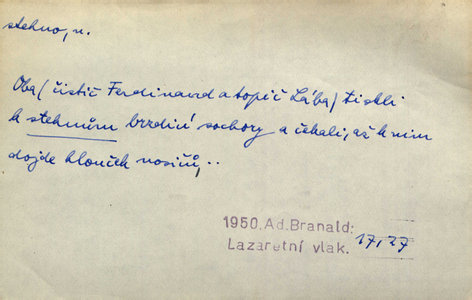 stehno, n.
Oba/ čistič Ferdinand a topič Lába/ tiskli
k stehnům brzdicí sochory a čekali, až k nim
dojde hlouček nosičů,..
1950. Ad. Branald:
Lazaretní vlak. 17, 27